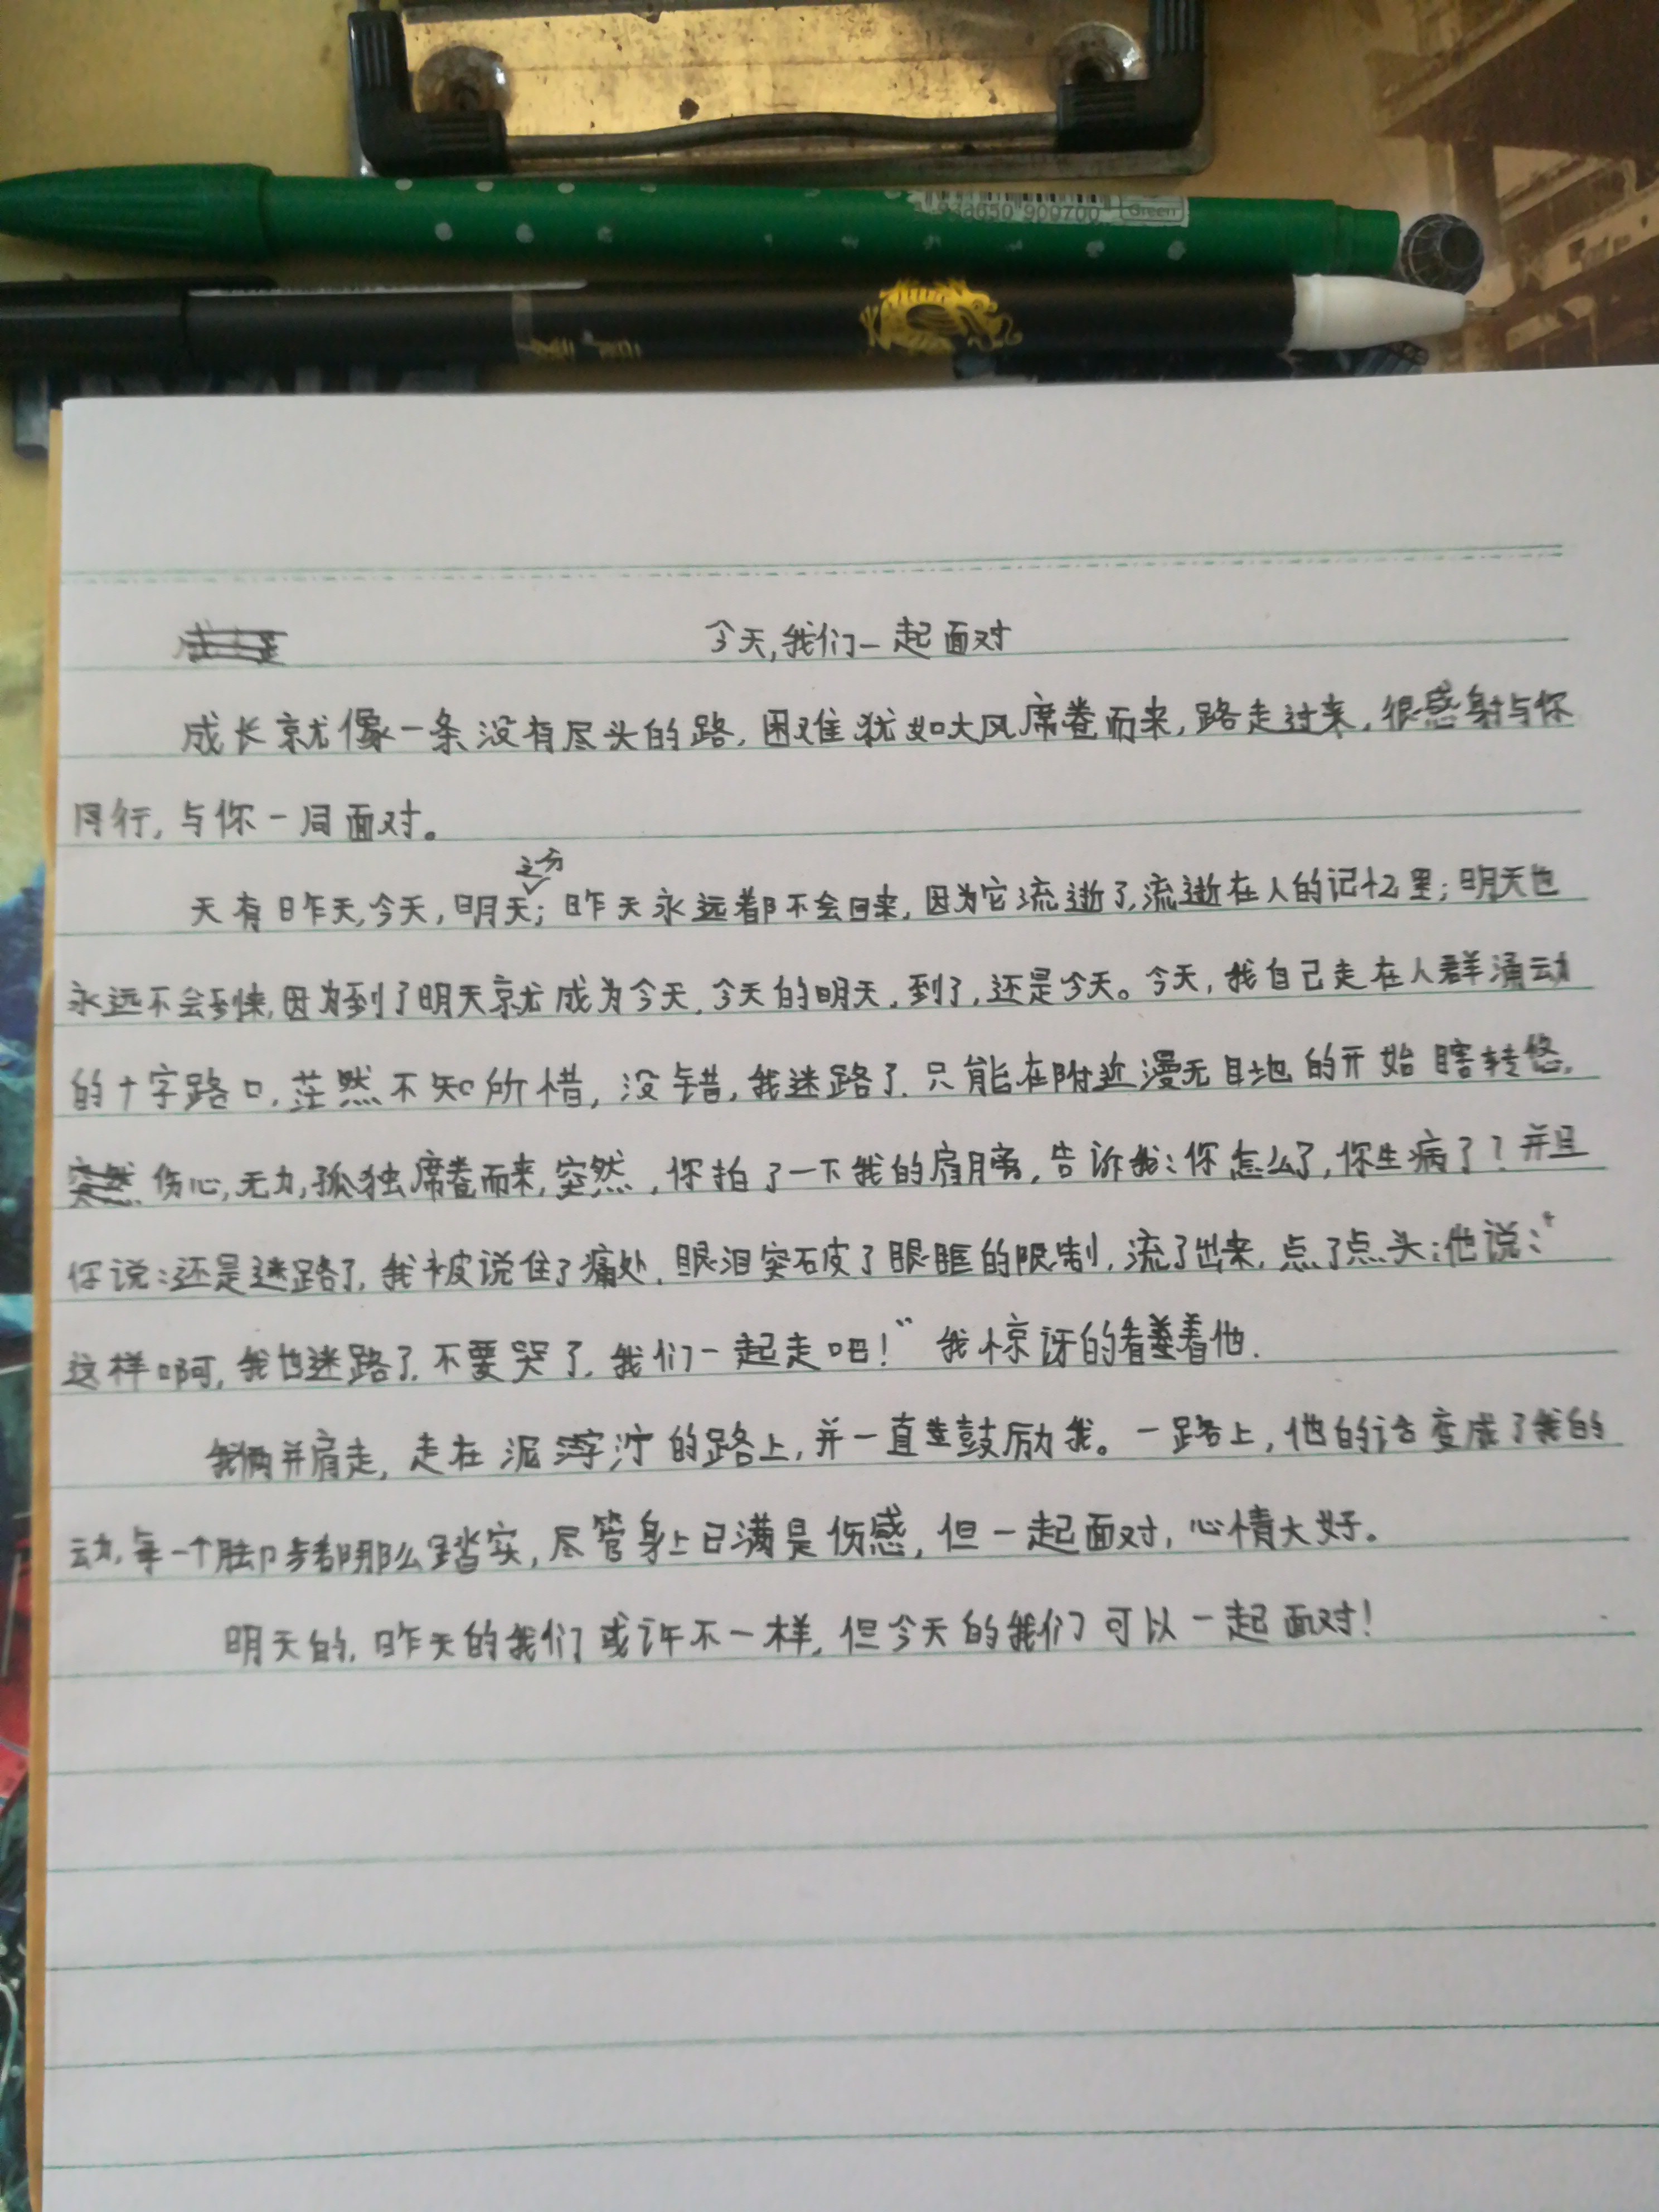 6950 909700 Green
今天,我们一起面对
成长就像一条没有尽头的路,困难犹如大风席卷而来,路走过来,很感射与你
同行,与你一同面对。
天有昨天,今天,明天之分;昨天永远都不会回来,因为它流逝了,流逝在人的记忆里;明天也
永远不会到来,因为到了明天就成为今天,今天的明天,到了,还是今天。今天,我自己走在人群涌动
的十字路口,茫然不知所惜,没错,我迷路了,只能在附近漫无目地的开始瞎转悠,
伤心,无力,孤独席卷而来,突然,你拍了一下我的肩膀,告诉我:你怎么了,你生病了?并且
你说:还是迷路了,我被说住了痛处,眼泪突破了眼眶的限制,流了出来,点了点头;他说:“
这样啊,我也迷路了,不要哭了,我们一起走吧!”我惊讶的看着他.
我俩并肩走,走在泥泞的路上,并一直鼓励我。一路上,他的话变成了我的
动,每一个脚步都那么踏实,尽管身上已满是伤感,但一起面对,心情大好。
明天的,昨天的我们或许不一样,但今天的我们可以一起面对!